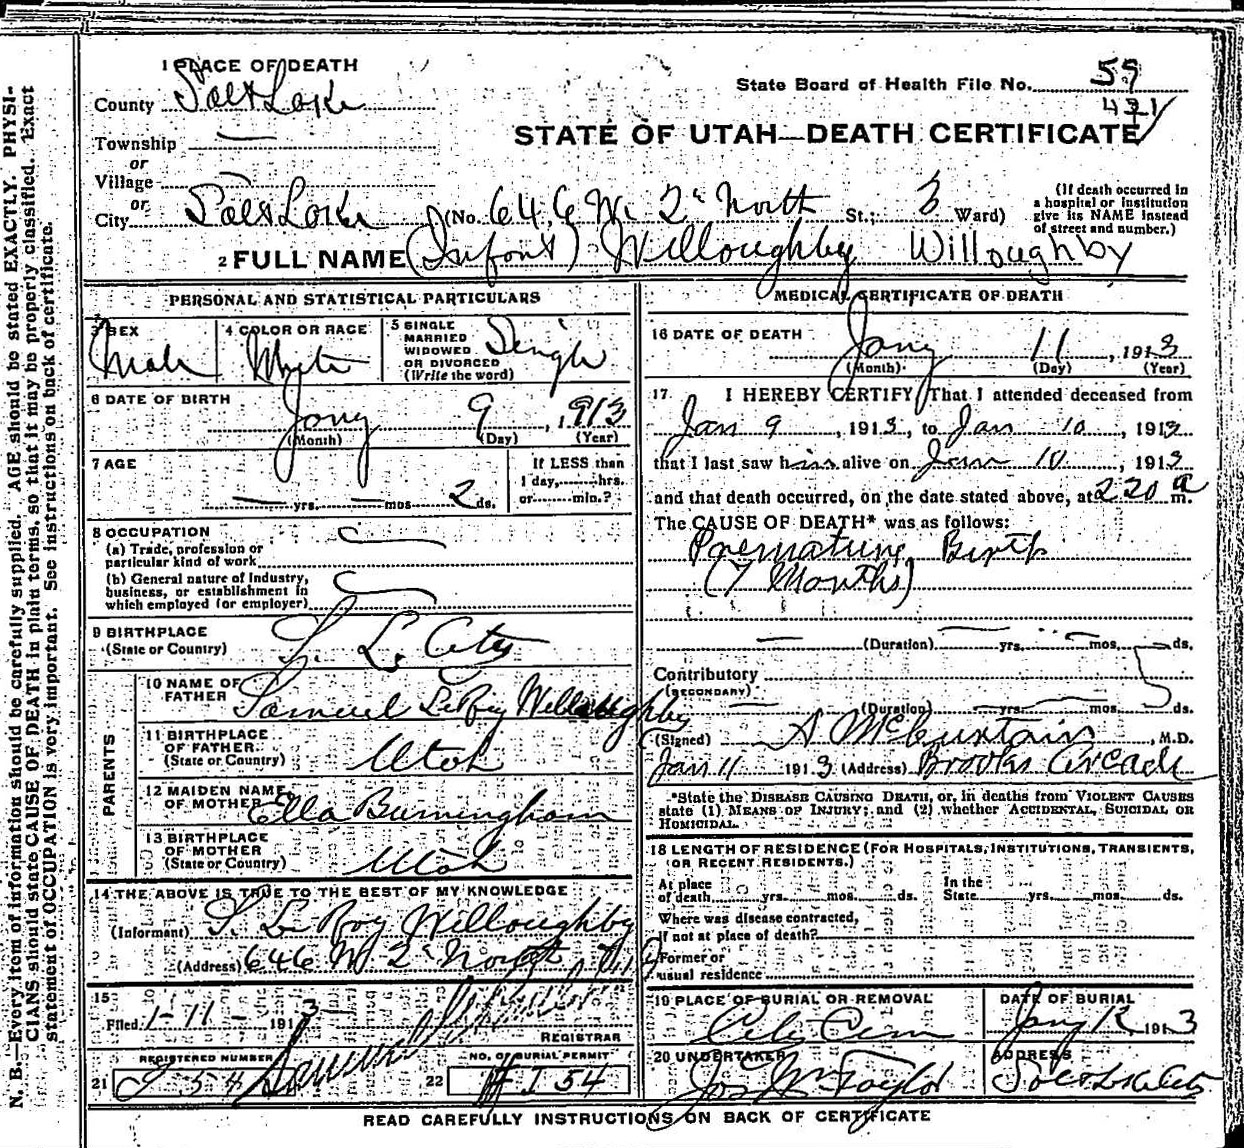 N. B.—Every item of information should be carefully supplied. AGE should be stated EXACTLY. PHYSI-
CIANS should state CAUSE OF DEATH in plain terms, so that it may be properly classified. Exact
statement of OCCUPATION is very important. See instructions on back of certificate.
1 PLACE OF DEATH
County Salt Lake
Township —
or
Village
or
City Salt Lake (No. 646 W. 2" North St.; 3 Ward)
(If death occurred in
a hospital or institution
give its NAME instead
of street and number.)
State Board of Health File No. 59
431
STATE OF UTAH—DEATH CERTIFICATE
2 FULL NAME (Infant) Willoughby Willoughby
PERSONAL AND STATISTICAL PARTICULARS
3 SEX
Male
4 COLOR OR RACE
White
5 SINGLE
MARRIED
WIDOWED
OR DIVORCED
(Write the word)
Single
6 DATE OF BIRTH
Jany 9, 1913
(Month) (Day) (Year)
7 AGE
— yrs. — mos. 2 ds.
If LESS than
1 day, hrs.
or min.?
8 OCCUPATION
(a) Trade, profession or
particular kind of work
(b) General nature of industry,
business, or establishment in
which employed (or employer)
9 BIRTHPLACE
(State or Country)
S. L. City
PARENTS
10 NAME OF
FATHER
Samuel LeRoy Willoughby
11 BIRTHPLACE
OF FATHER
(State or Country)
Utah
12 MAIDEN NAME
OF MOTHER
Ella Burningham
13 BIRTHPLACE
OF MOTHER
(State or Country)
Utah
14 THE ABOVE IS TRUE TO THE BEST OF MY KNOWLEDGE
(Informant) S. LeRoy Willoughby
(Address) 646 W 2" North
15
Filed 1-11- 1913
REGISTRAR
21 REGISTERED NUMBER
I 54
22 NO. OF BURIAL PERMIT
# I 54
MEDICAL CERTIFICATE OF DEATH
16 DATE OF DEATH
Jany 11, 1913
(Month) (Day) (Year)
17. I HEREBY CERTIFY, That I attended deceased from
Jan 9, 1913, to Jan 10, 1913
that I last saw him alive on Jan 10, 1913
and that death occurred, on the date stated above, at 220 a m.
The CAUSE OF DEATH* was as follows:
Premature Birth
(7 Months)
(Duration) yrs. mos. ds.
Contributory
(SECONDARY)
(Duration) yrs. mos. ds.
(Signed) A McCurtain, M.D.
Jan 11 1913 (Address) Brooks Arcade
*State the DISEASE CAUSING DEATH, or, in deaths from VIOLENT CAUSES
state (1) MEANS OF INJURY; and (2) whether ACCIDENTAL, SUICIDAL OR
HOMICIDAL.
18 LENGTH OF RESIDENCE (FOR HOSPITALS, INSTITUTIONS, TRANSIENTS,
OR RECENT RESIDENTS.)
At place
of death yrs. mos. ds.
In the
State yrs. mos. ds.
Where was disease contracted,
if not at place of death?
Former or
usual residence
19 PLACE OF BURIAL OR REMOVAL
City Cem
DATE OF BURIAL
Jany 12 1913
20 UNDERTAKER
Jos Wm Taylor
ADDRESS
Salt Lake City
READ CAREFULLY INSTRUCTIONS ON BACK OF CERTIFICATE